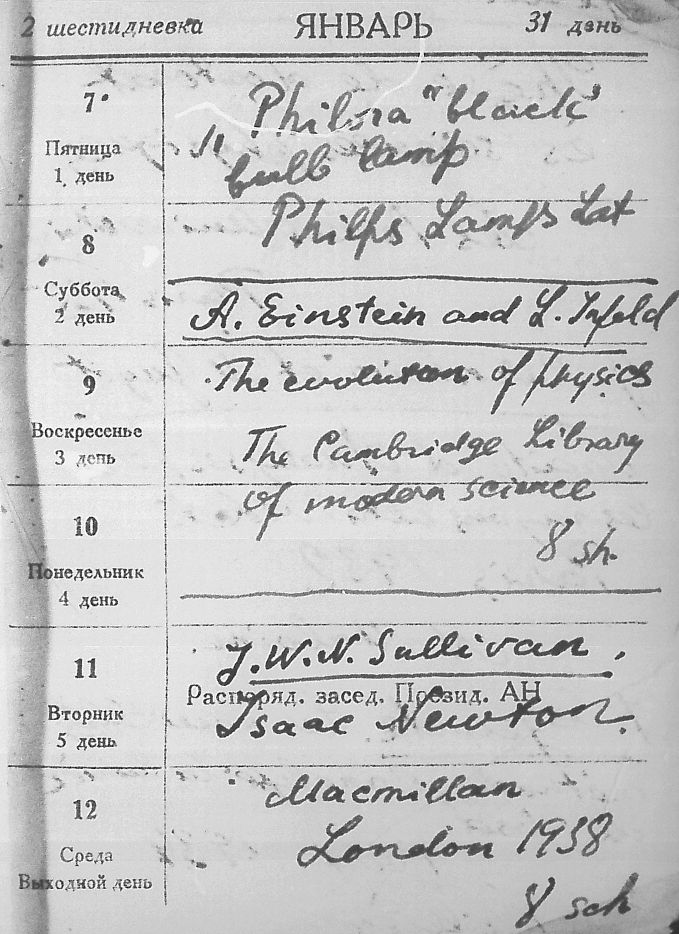 2 шестидневка ЯНВАРЬ 31 день
7
Пятница
1 день
Philora "black"
bulb lamp
8
Суббота
2 день
Philps Lamps Lat
A. Einstein and L. Infeld
9
Воскресенье
3 день
The evolution of physics
The Cambridge Library
of modern science
10
Понедельник
4 день
8 sh.
11
Вторник
5 день
J.W.N. Sullivan.
Распоряд. засед. Презид. АН
Isaac Newton.
12
Среда
Выходной день
Macmillan
London 1938
8 sch